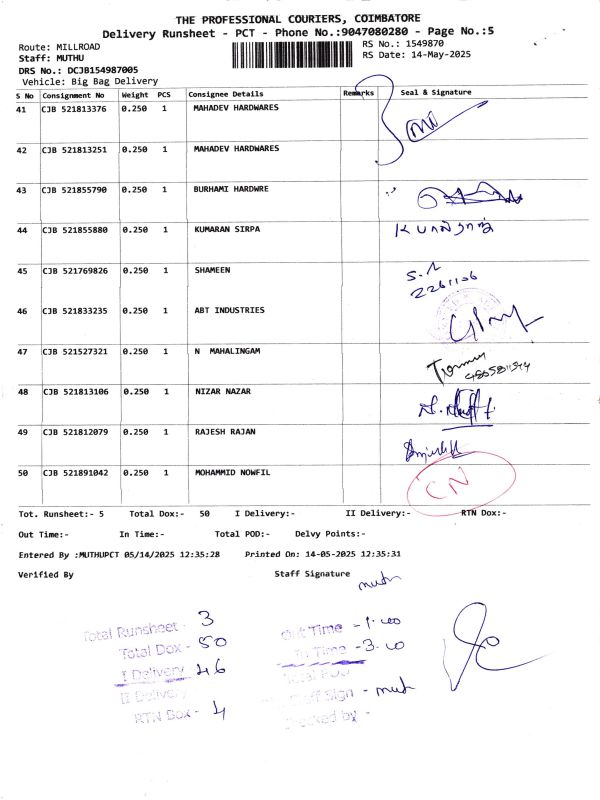 THE PROFESSIONAL COURIERS, COIMBATORE
Delivery Runsheet - PCT - Phone No.:9047080280 - Page No.:5
Route: MILLROAD
RS No.: 1549870
Staff: MUTHU
RS Date: 14-May-2025
DRS No.: DCJB154987005
Vehicle: Big Bag Delivery
S No Consignment No Weight PCS Consignee Details Remarks Seal & Signature
41 CJB 521813376 0.250 1 MAHADEV HARDWARES
42 CJB 521813251 0.250 1 MAHADEV HARDWARES
43 CJB 521855790 0.250 1 BURHAMI HARDWRE
44 CJB 521855880 0.250 1 KUMARAN SIRPA
45 CJB 521769826 0.250 1 SHAMEEN
46 CJB 521833235 0.250 1 ABT INDUSTRIES
47 CJB 521527321 0.250 1 N MAHALINGAM
48 CJB 521813106 0.250 1 NIZAR NAZAR
49 CJB 521812079 0.250 1 RAJESH RAJAN
50 CJB 521891042 0.250 1 MOHAMMID NOWFIL CN
Tot. Runsheet:- 5 Total Dox:- 50 I Delivery:- II Delivery:- RTN Dox:-
Out Time:- In Time:- Total POD:- Delvy Points:-
Entered By :MUTHUPCT 05/14/2025 12:35:28 Printed On: 14-05-2025 12:35:31
Verified By Staff Signature
muth
Total Runsheet - 3
Out Time - 1.00
Total Dox - 50
In Time - 3.00
I Delivery 46
Total POD
II Delivery
Staff Sign - muth
RTN Dox - 4
Checked by -